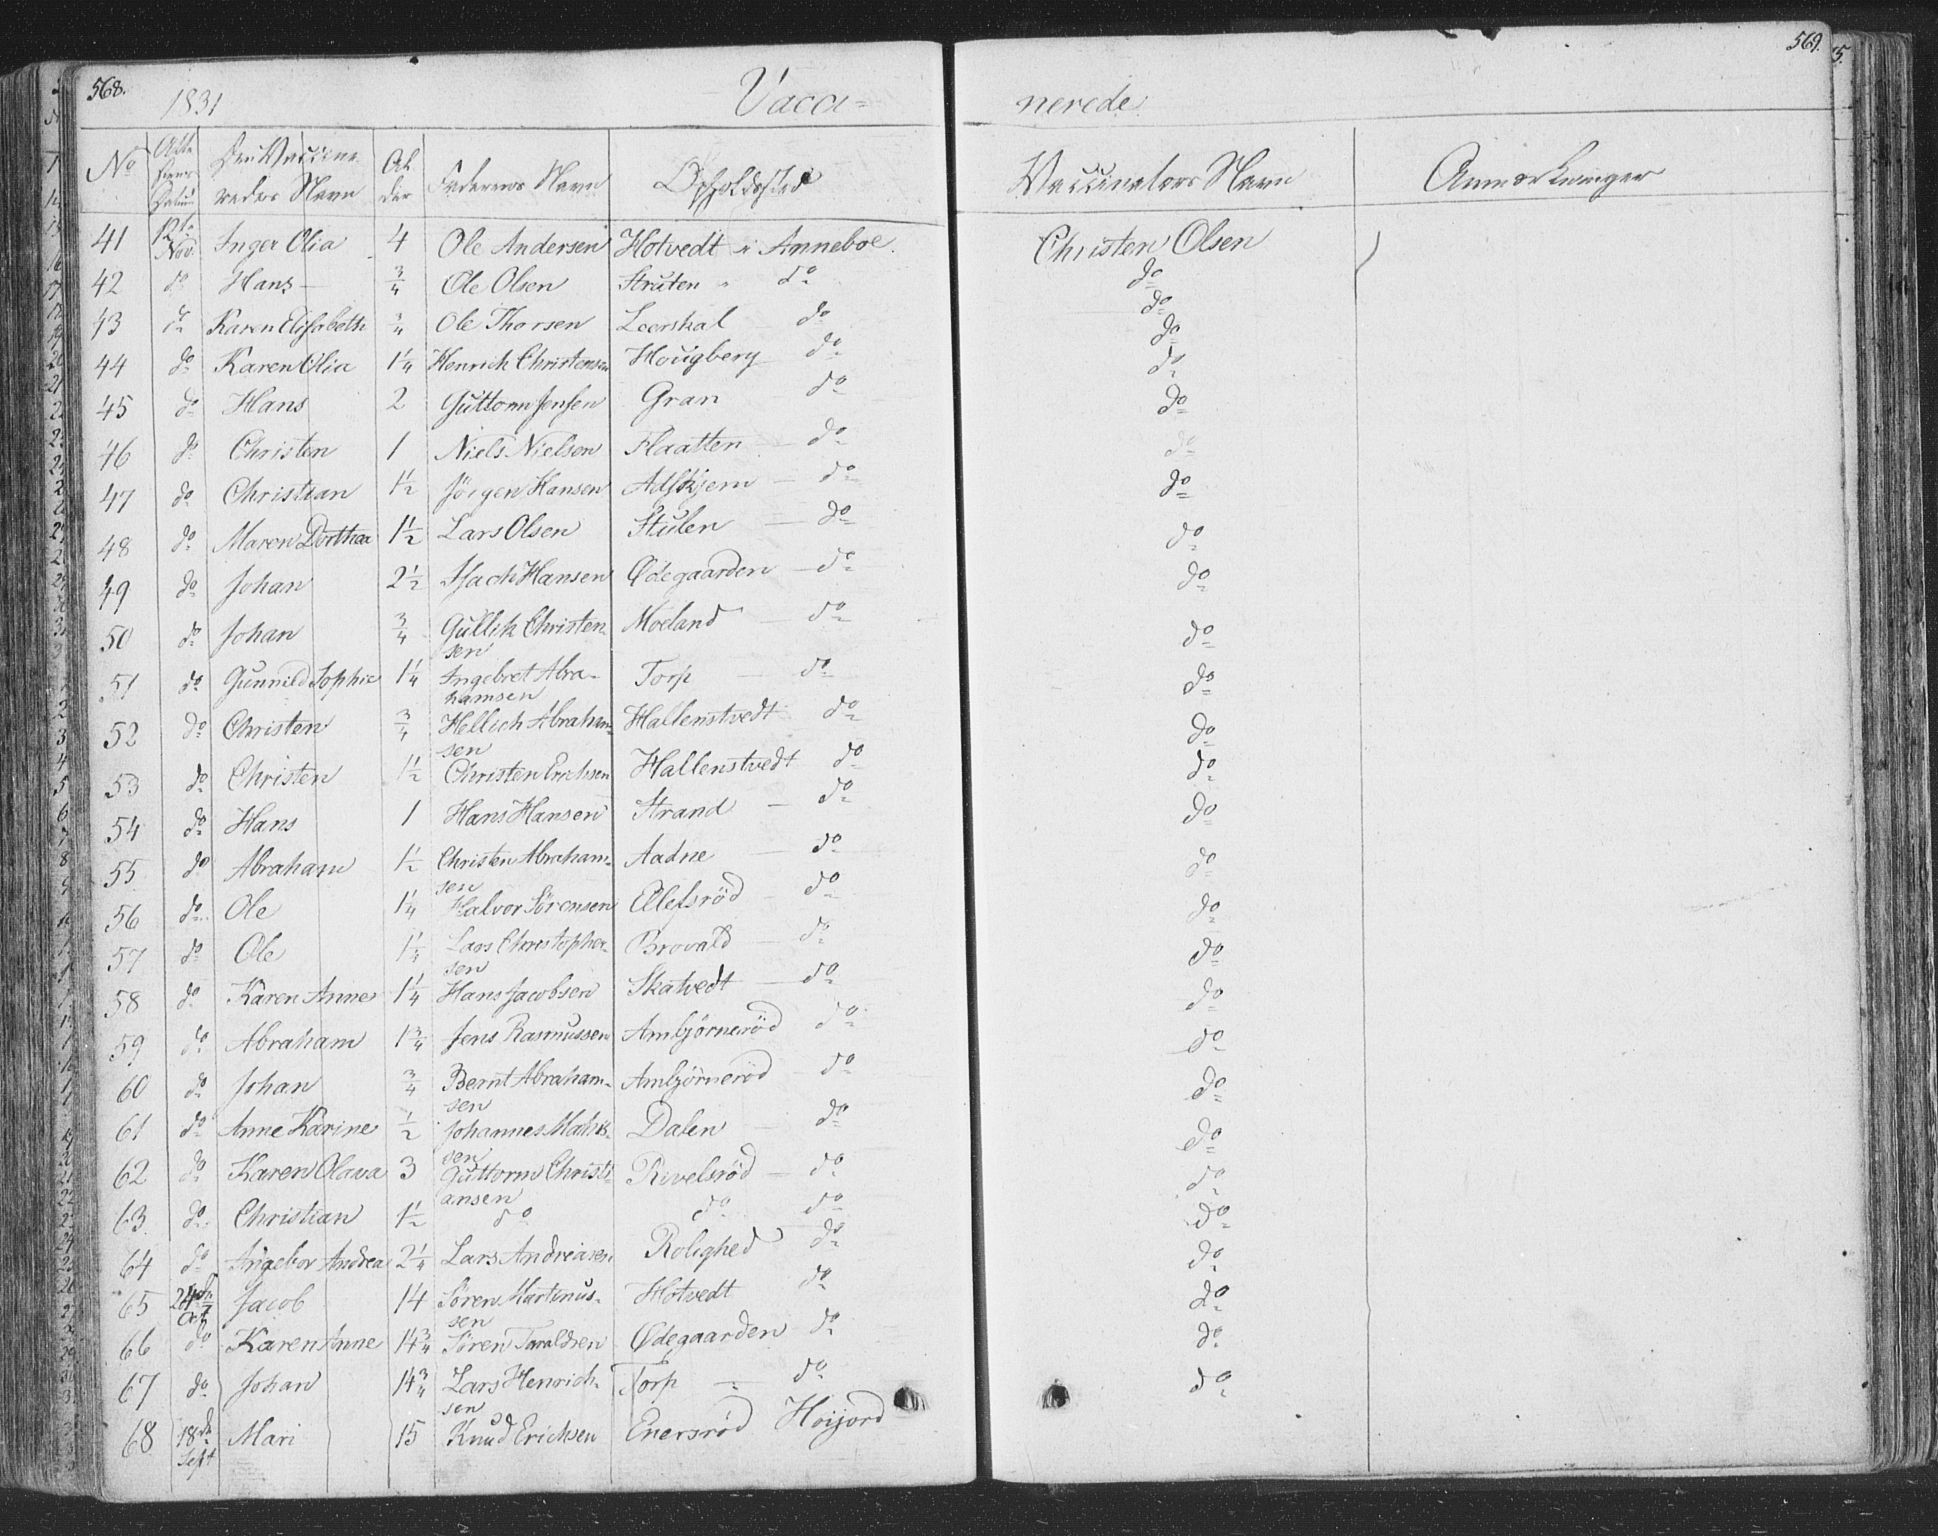 568.
1831
Vacci=
nerede
569.
No Atte stens Datum Den Vaccine redes Navn Al der Faderens Navn Opholdssted Vaccinators Navn Anmerkninger
41 12te Nov. Inger Olia 4 Ole Andersen Hotvedt i Anneboe Christen Olsen
42 do Hans 3/4 Ole Olsen Struten " do do
43 do Karen Elisabeth 3/4 Ole Thorsen Leerskal do do
44 do Karen Olia 1 1/4 Henrich Christensen Hougberg do do
45 do Hans 2 Guttorm Jensen Gran do do
46 do Christen 1 Niels Nielsen Flaatten do do
47 do Christian 1 1/2 Jörgen Hansen Adskjem do do
48 do Maren Dorthea 1 1/2 Lars Olsen Stulen do do
49 do Johan 2 1/2 Isach Hansen Ødegaarden do do
50 do Johan 3/4 Gullik Christen- sen Moeland do do
51 do Gunnild Sophie 1 1/4 Ingebret Abra- hamsen Torp do do
52 do Christen 3/4 Hellich Abraham- sen Hallenstvedt do do
53 do Christen 1 1/2 Christen Erichsen Hallenstvedt do do
54 do Hans 1 Hans Hansen Strand do do
55 do Abraham 1 1/2 Christen Abraham- sen Aadne do do
56 do Ole 1 1/4 Halvor Sörensen Ellefsröd do do
57 do Ole 1 1/4 Lars Christopher- sen Brovald do do
58 do Karen Anne 1 1/4 Hans Jacobsen Skatvedt do do
59 do Abraham 1 3/4 Jens Rasmussen Ambjörneröd do do
60 do Johan 3/4 Bernt Abraham- sen Ambjörneröd do do
61 do Anne Karine 1/2 Johannes Mathis- sen Dalen do do
62 do Karen Olava 3 Guttorm Christi- ansen Rivelsröd do do
63 do Christian 1 1/2 do do do do
64 do Ingebor Andrea 2 1/4 Lars Andreasen Rolighed do do
65 24de Jacob 14 Sören Martinus- sen Hotvedt do do
66 do Karen Anne 14 3/4 Sören Taraldsen Ødegaarden do do
67 do Johan 14 3/4 Lars Henrich- sen Torp do do
68 18de Sept Mari 15 Knud Erichsen Enersröd Höijord